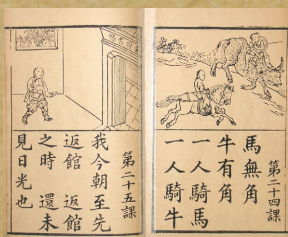 第二十四課
馬無角
牛有角
一人騎馬
一人騎牛
第二十五課
我今朝至先
返館 返館
之時 還未
見日光也